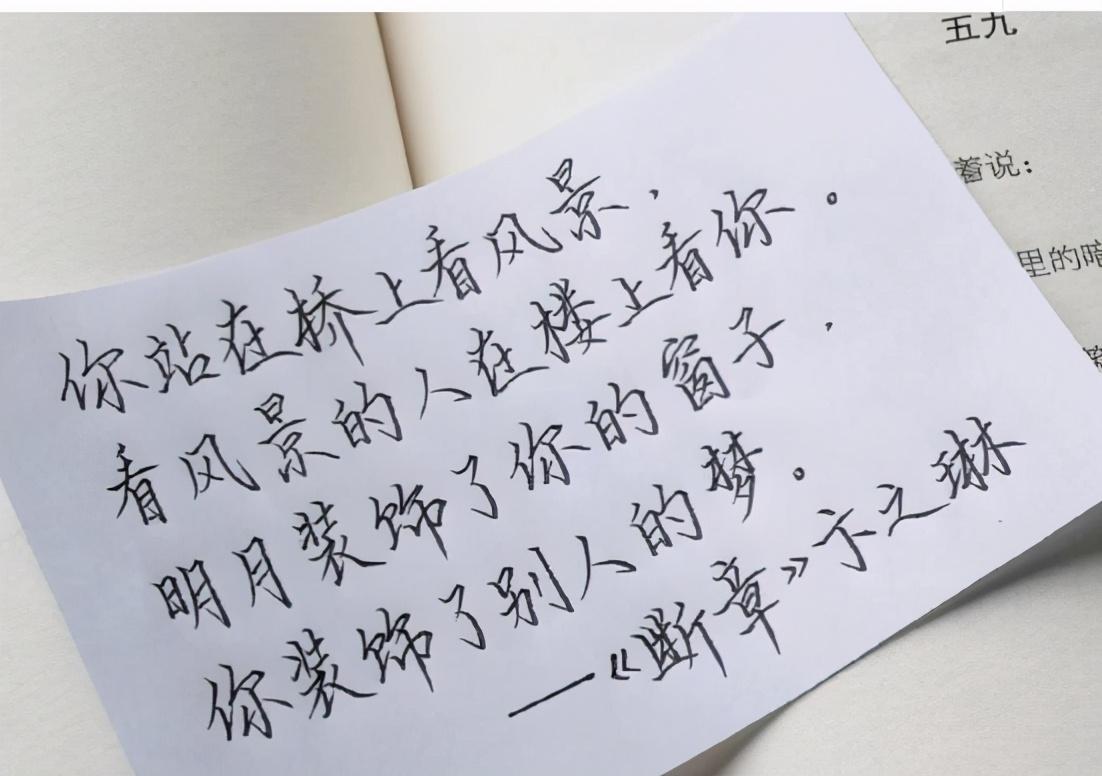 你站在桥上看风景，
看风景的人在楼上看你。
明月装饰了你的窗子，
你装饰了别人的梦。
——《断章》卞之琳
五九
蓄说：
里的暗